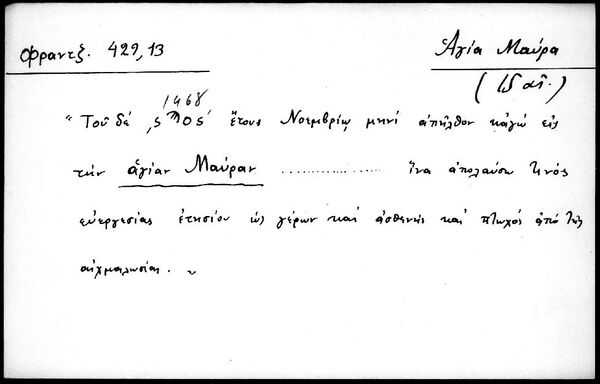 Φραντζ. 429,13
Ἁγία Μαύρα
1468
"Τοῦ δέ ἔτους Νοεμβρίῳ μηνί ἀπῆλθον κἀγώ εἰς
τήν ἁγίαν Μαύραν .................. ἵνα ἀπολαύσω τινός
εὐεργεσίας ἐτησίου ὡς γέρων καί ἀσθενής καί πτωχός ἀπό τῆς
αἰχμαλωσίας. "